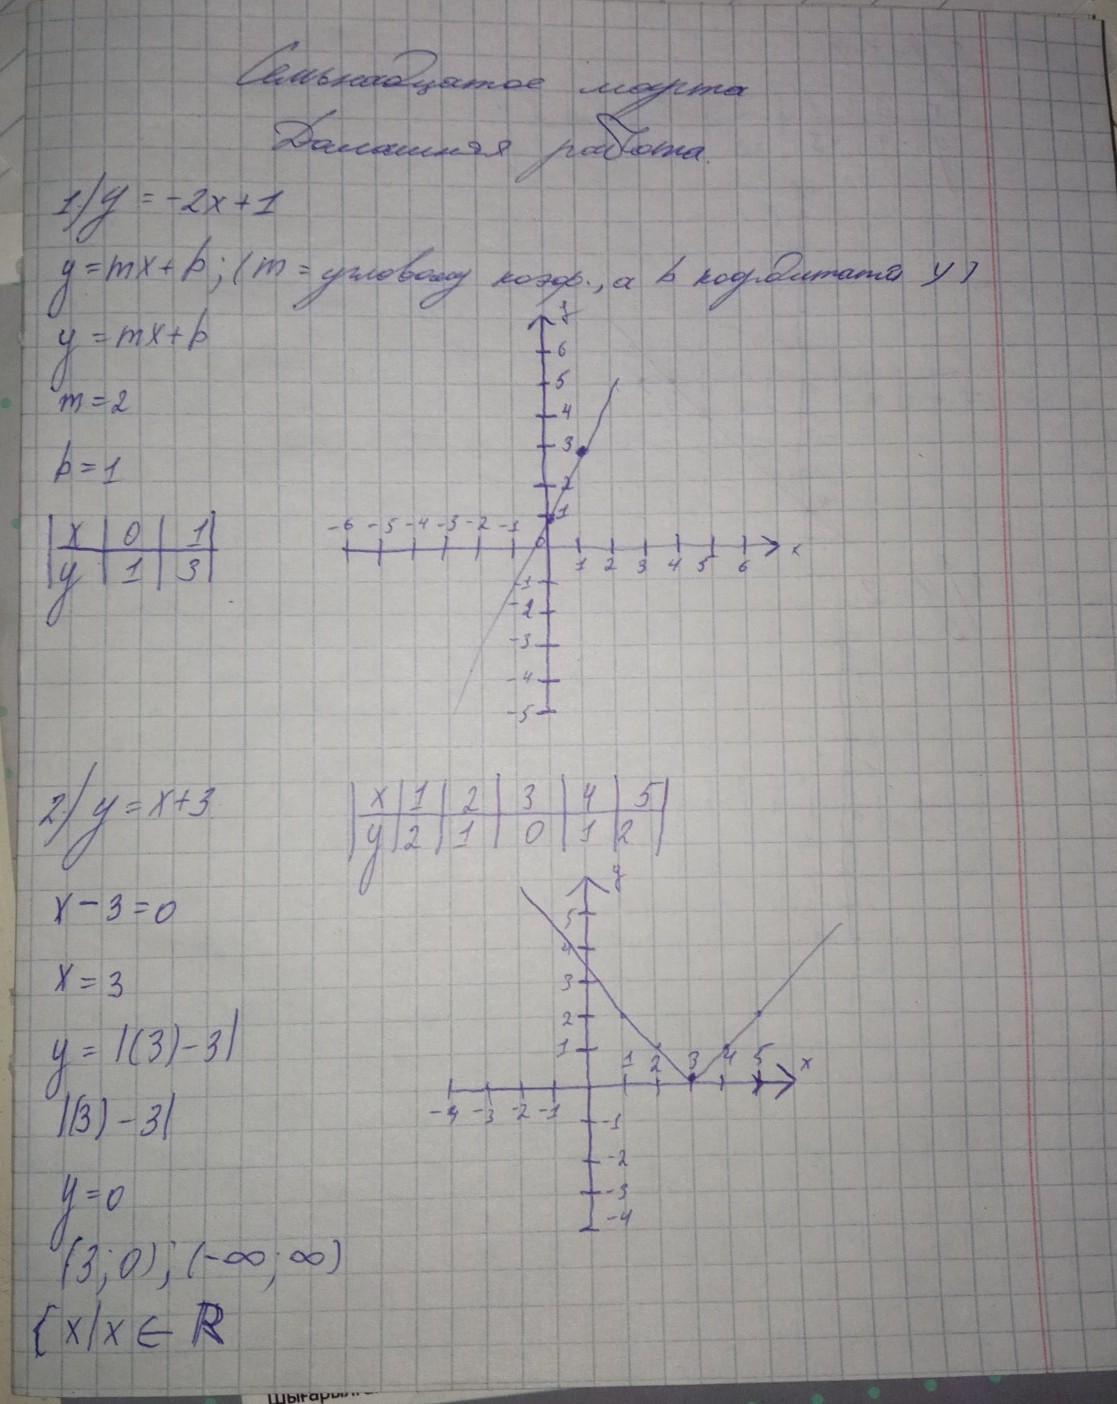 Семьнадцатое марта
Домашняя работа.
1.) y = -2x+1
y=mx+b; (m = угловому коэф., а b y)
y = mx+b
m = 2
b = 1
x 0 1
y 1 3
y
6
5
4
3
2
1
-6 -5 -4 -3 -2 -1 0 1 2 3 4 5 6 x
-1
-2
-3
-4
-5
2.) y = x+3
x 1 2 3 4 5
y 2 1 0 1 2
x - 3 = 0
x = 3
y = |(3) - 3|
|(3) - 3|
y = 0
(3; 0); (-∞; ∞)
{x|x ∈ ℝ
y
5
4
3
2
1
-4 -3 -2 -1 1 2 3 4 5 x
-1
-2
-3
-4